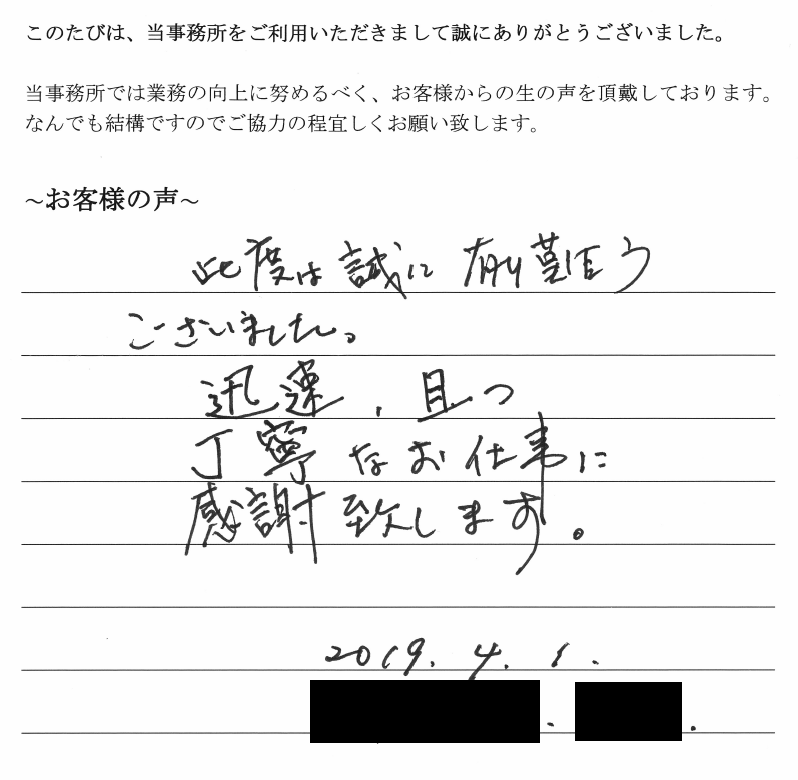 このたびは、当事務所をご利用いただきまして誠にありがとうございました。
当事務所では業務の向上に努めるべく、お客様からの生の声を頂戴しております。
なんでも結構ですのでご協力の程宜しくお願い致します。
~お客様の声~
此度は誠に有り難とう
ございました。
迅速、且つ
丁寧なお仕事に
感謝致します。
2019.4.1.